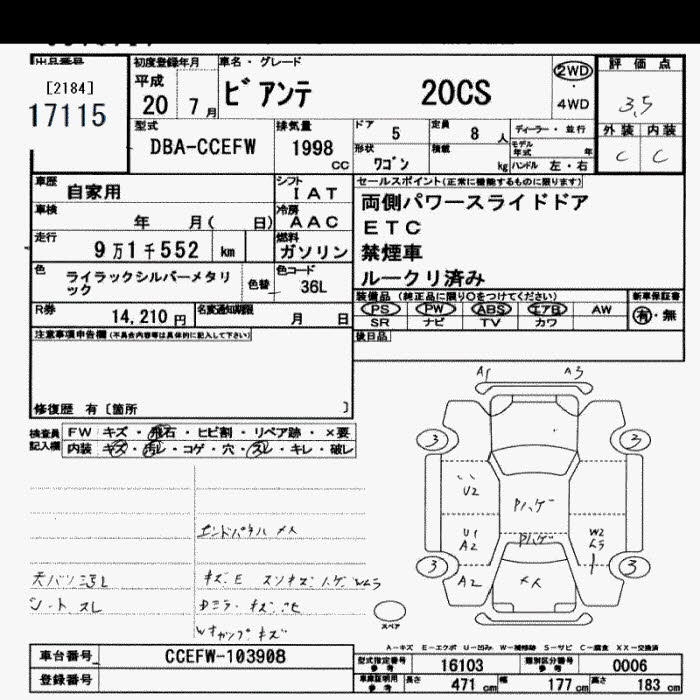 出品番号
[2184]
17115
初度登録年月
平成
20 7 月
車名・グレード
ビアンテ 20CS
2WD
・
4WD
評価点
3,5
外装 内装
C C
型式
DBA-CCEFW
排気量
1998
CC
ドア
5
定員
8 人
ディーラー・並行
形状
ワゴン
積載
kg
モデル年式 年
ハンドル 左・右
車歴
自家用
シフト
I A T
車検
年 月( 日)
冷房
A A C
走行
9万1千552 km
燃料
ガソリン
色
ライラックシルバーメタリック
色替
色コード
36L
R券
14,210 円
名変通知期限
月 日
セールスポイント(正常に機能するものに限ります)
両側パワースライドドア
ETC
禁煙車
ルークリ済み
装備品 (純正品に限り〇をつけてください)
新車保証書
PS PW ABS エアB AW
有・無
SR ナビ TV カワ
後日品
注意事項申告欄(不具合内容等は具体的に記入して下さい)
修復歴 有〔箇所 〕
検査員記入欄
FW キズ・飛石・ヒビ割・リペア跡・×要
内装 キズ・汚レ・コゲ・穴・スレ・キレ・破レ
A1 A3
3 3
U2
Pハゲ
U1
A2
Pハゲ
W2
3 3
A2
スペア
シート スレ
A-キズ E-エクボ U-凹み W-補修跡 S-サビ C-腐食 XX-交換済
車台番号
CCEFW-103908
登録番号
型式指定番号
参考
16103
類別区分番号
参考
0006
車庫証明用
参考
長さ 471 cm
幅 177 cm
高さ 183 cm